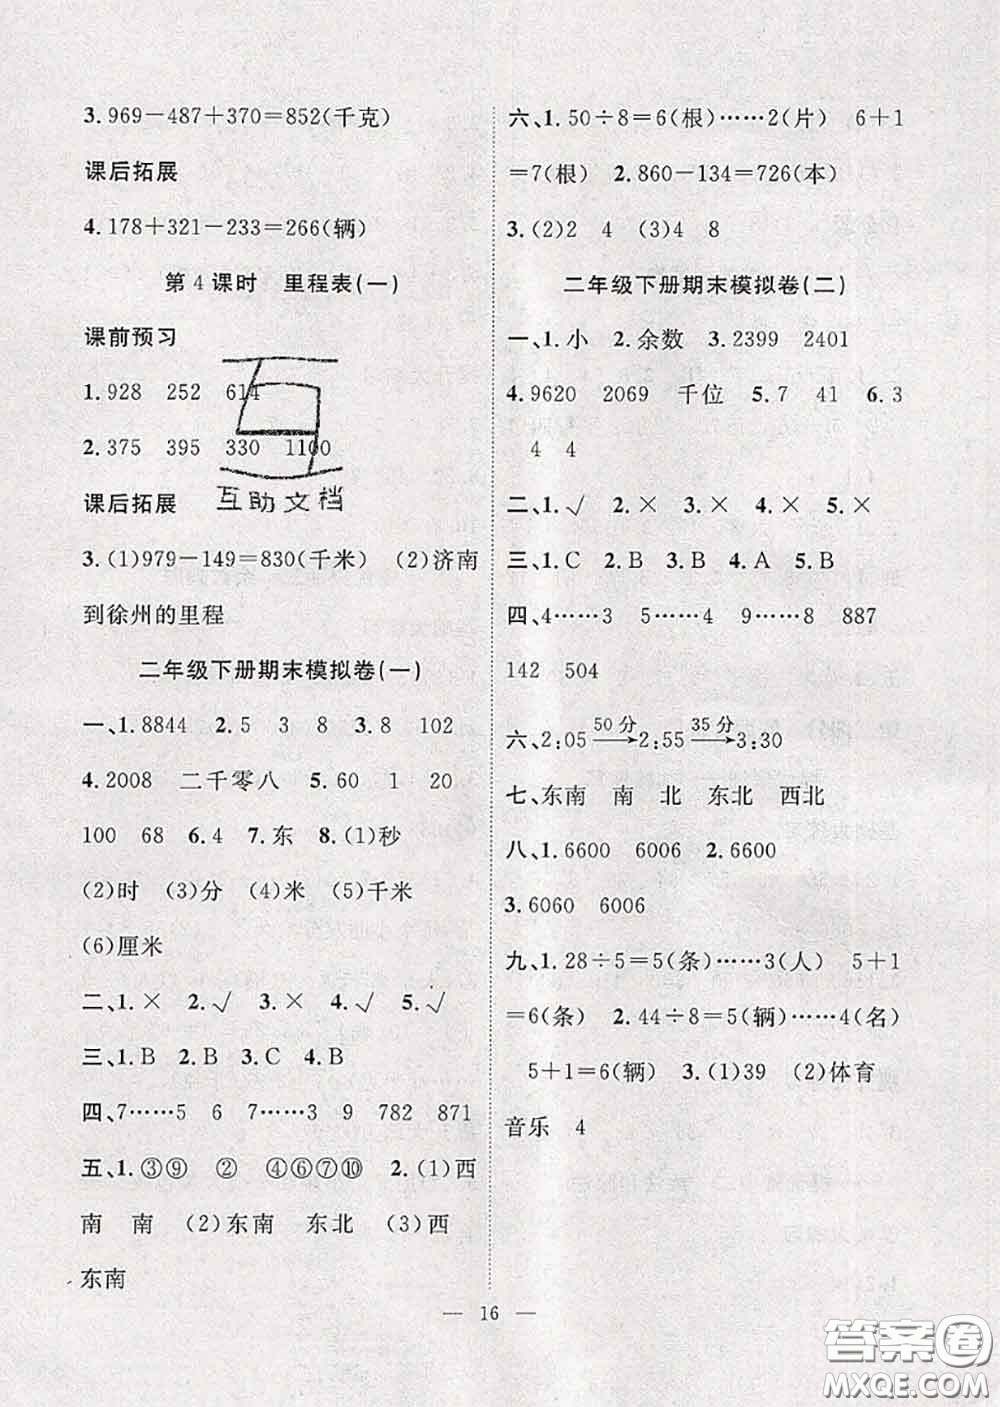 3.969－487＋370＝852(千克)
课后拓展
4.178＋321－233＝266(辆)
第 4 课时　里程表(一)
课前预习
1.928　252　614
2.375　395　330　1100
互助文档
课后拓展
3.(1)979－149＝830(千米)　(2)济南
到徐州的里程
二年级下册期末模拟卷(一)
一、1.8844　2.5　3　8　3.8　102
4.2008　二千零八　5.60　1　20
100　68　6.4　7.东　8.(1)秒
(2)时　(3)分　(4)米　(5)千米
(6)厘米
二、1.×　2.√　3.×　4.√　5.√
三、1.B　2.B　3.C　4.B
四、7……5　6　7……3　9　782　871
五、1.③⑨　②　④⑥⑦⑩　2.(1)西
南　南　(2)东南　东北　(3)西
东南
六、1.50÷8＝6(根)……2(片)　6＋1
＝7(根)　2.860－134＝726(本)
3.(2)2　4　(3)4　8
二年级下册期末模拟卷(二)
一、1.小　2.余数　3.2399　2401
4.9620　2069　千位　5.7　41　6.3
4　4
二、1.√　2.×　3.×　4.×　5.×
三、1.C　2.B　3.B　4.A　5.B
四、4……3　5……4　9　8　887
142　504
六、2:05 50分→ 2:55 35分→ 3:30
七、东南　南　北　东北　西北
八、1.6600　6006　2.6600
3.6060　6006
九、1.28÷5＝5(条)……3(人)　5＋1
＝6(条)　2.44÷8＝5(辆)……4(名)
5＋1＝6(辆)　3.(1)39　(2)体育
音乐　4
— 16 —
答案圈
MXQE.COM